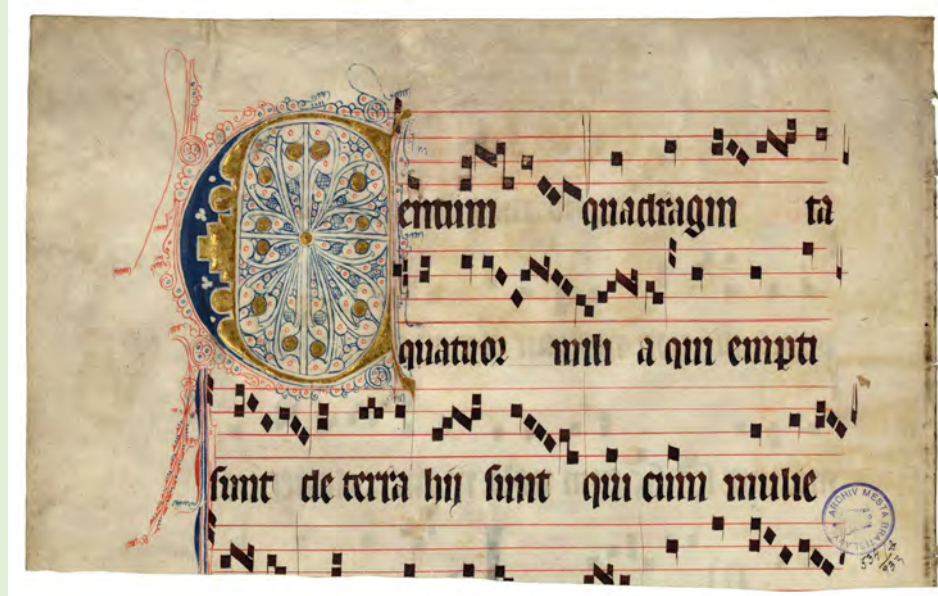 Centum quadragin ta
quatuor mili a qui empti
sunt de terra hij sunt qui cum mulie
ARCHIV MESTA BRATISLAVY